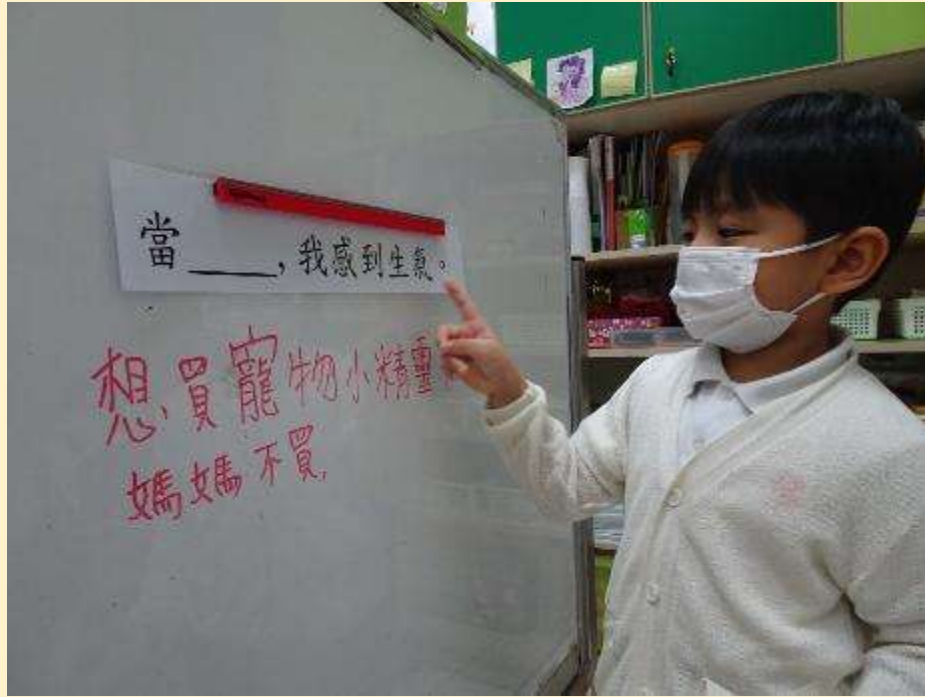 當____，我感到生氣。
想買寵物小精靈
媽媽不買,